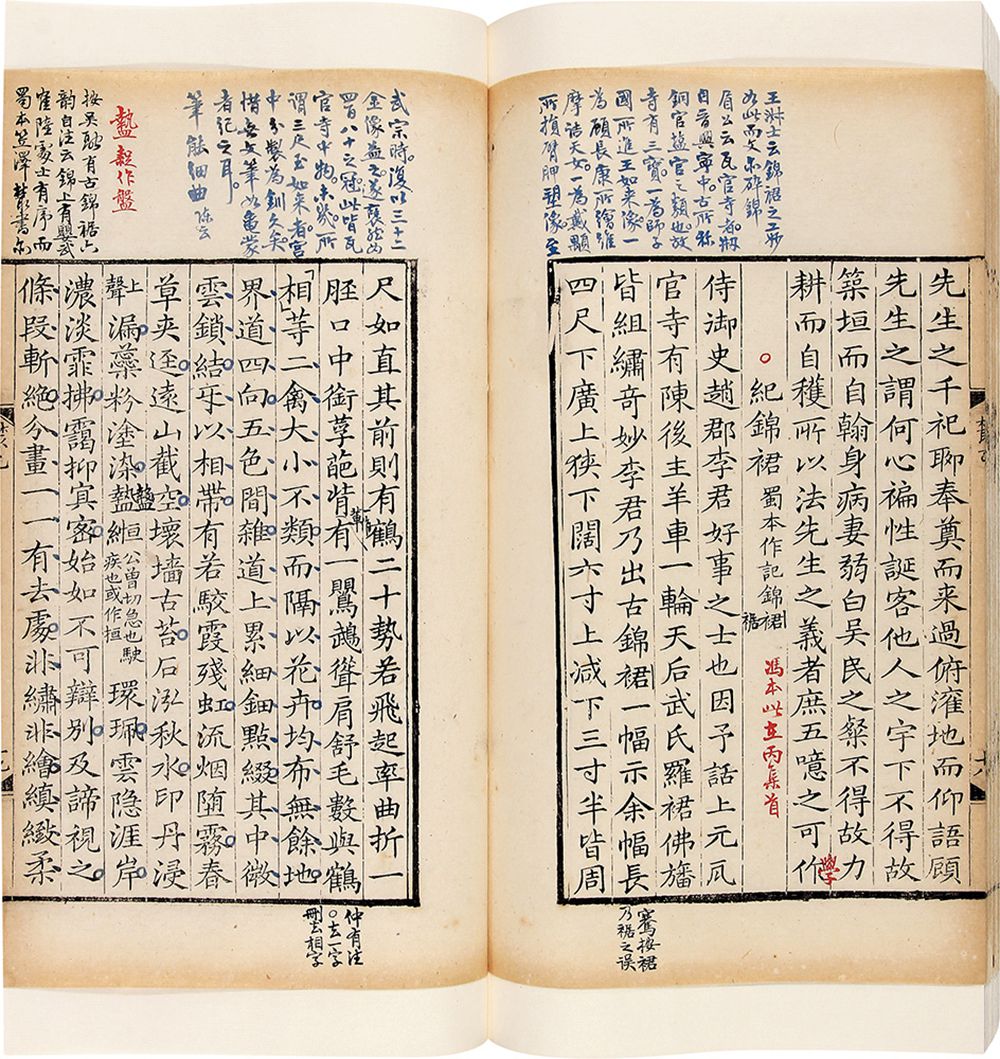 王淋士云錦裙之妙
如此而文亦碎錦
眉公云瓦官寺者捌
自晉興寧中古所称
銅官鹽官之類也故
寺有三寶一為師子
國所進玉如来像一
為顧長康所繪維
摩詰天女一為戴顒
所損臂胛塑像至
先生之千祀聊奉奠而来過俯漼地而仰語顧
先生之謂何心褊性誕客他人之宇下不得故
築垣而自翰身病妻弱白吴民之粲不得故力
耕而自穫所以法先生之義者庶五噫之可作
學
紀錦裙 蜀本作記錦裙
裾
馮本此在丙集首
侍御史趙郡李君好事之士也因予話上元瓦
官寺有陳後主羊車一輪天后武氏羅裙佛旛
皆組繡奇妙李君乃出古錦裙一幅示余幅長
四尺下廣上狹下闊六寸上减下三寸半皆周
騫按裙
乃裾之误
武宗時復以三十二
金像益之遂裒然如
四百八十之冠此皆瓦
官寺中物未幾所
謂三尺玉如来者宫
中分製為釧久矣
惜無文筆如龜蒙
者纪之耳
筆能細曲
盩 趍作盤
按吴融有古錦裾六
韵自注云錦上有鸚鵡
崔陸處士有序而
蜀本笠澤叢書亦
尺如直其前則有鶴二十勢若飛起率曲折一
脛口中銜莩葩背有一鸚鵡聳肩舒毛數與鶴
相等二禽大小不類而隔以花卉均布無餘地
界道四向五色間雜道上累細鈿點綴其中微
雲鎖結互以相帶有若駮霞殘虹流烟墮霧春
草夾迳遠山截空壞墻古苔石泓秋水印丹浸
上聲漏蘂粉塗染盩緪公曽切急也駛疾也或作㮓環珮雲隐涯岸
濃淡霏拂靄抑冥密始如不可辯别及諦視之
條段斬絶分畫一一有去處非繡非繪縝緻柔
仲有注
去一字
冊去相字